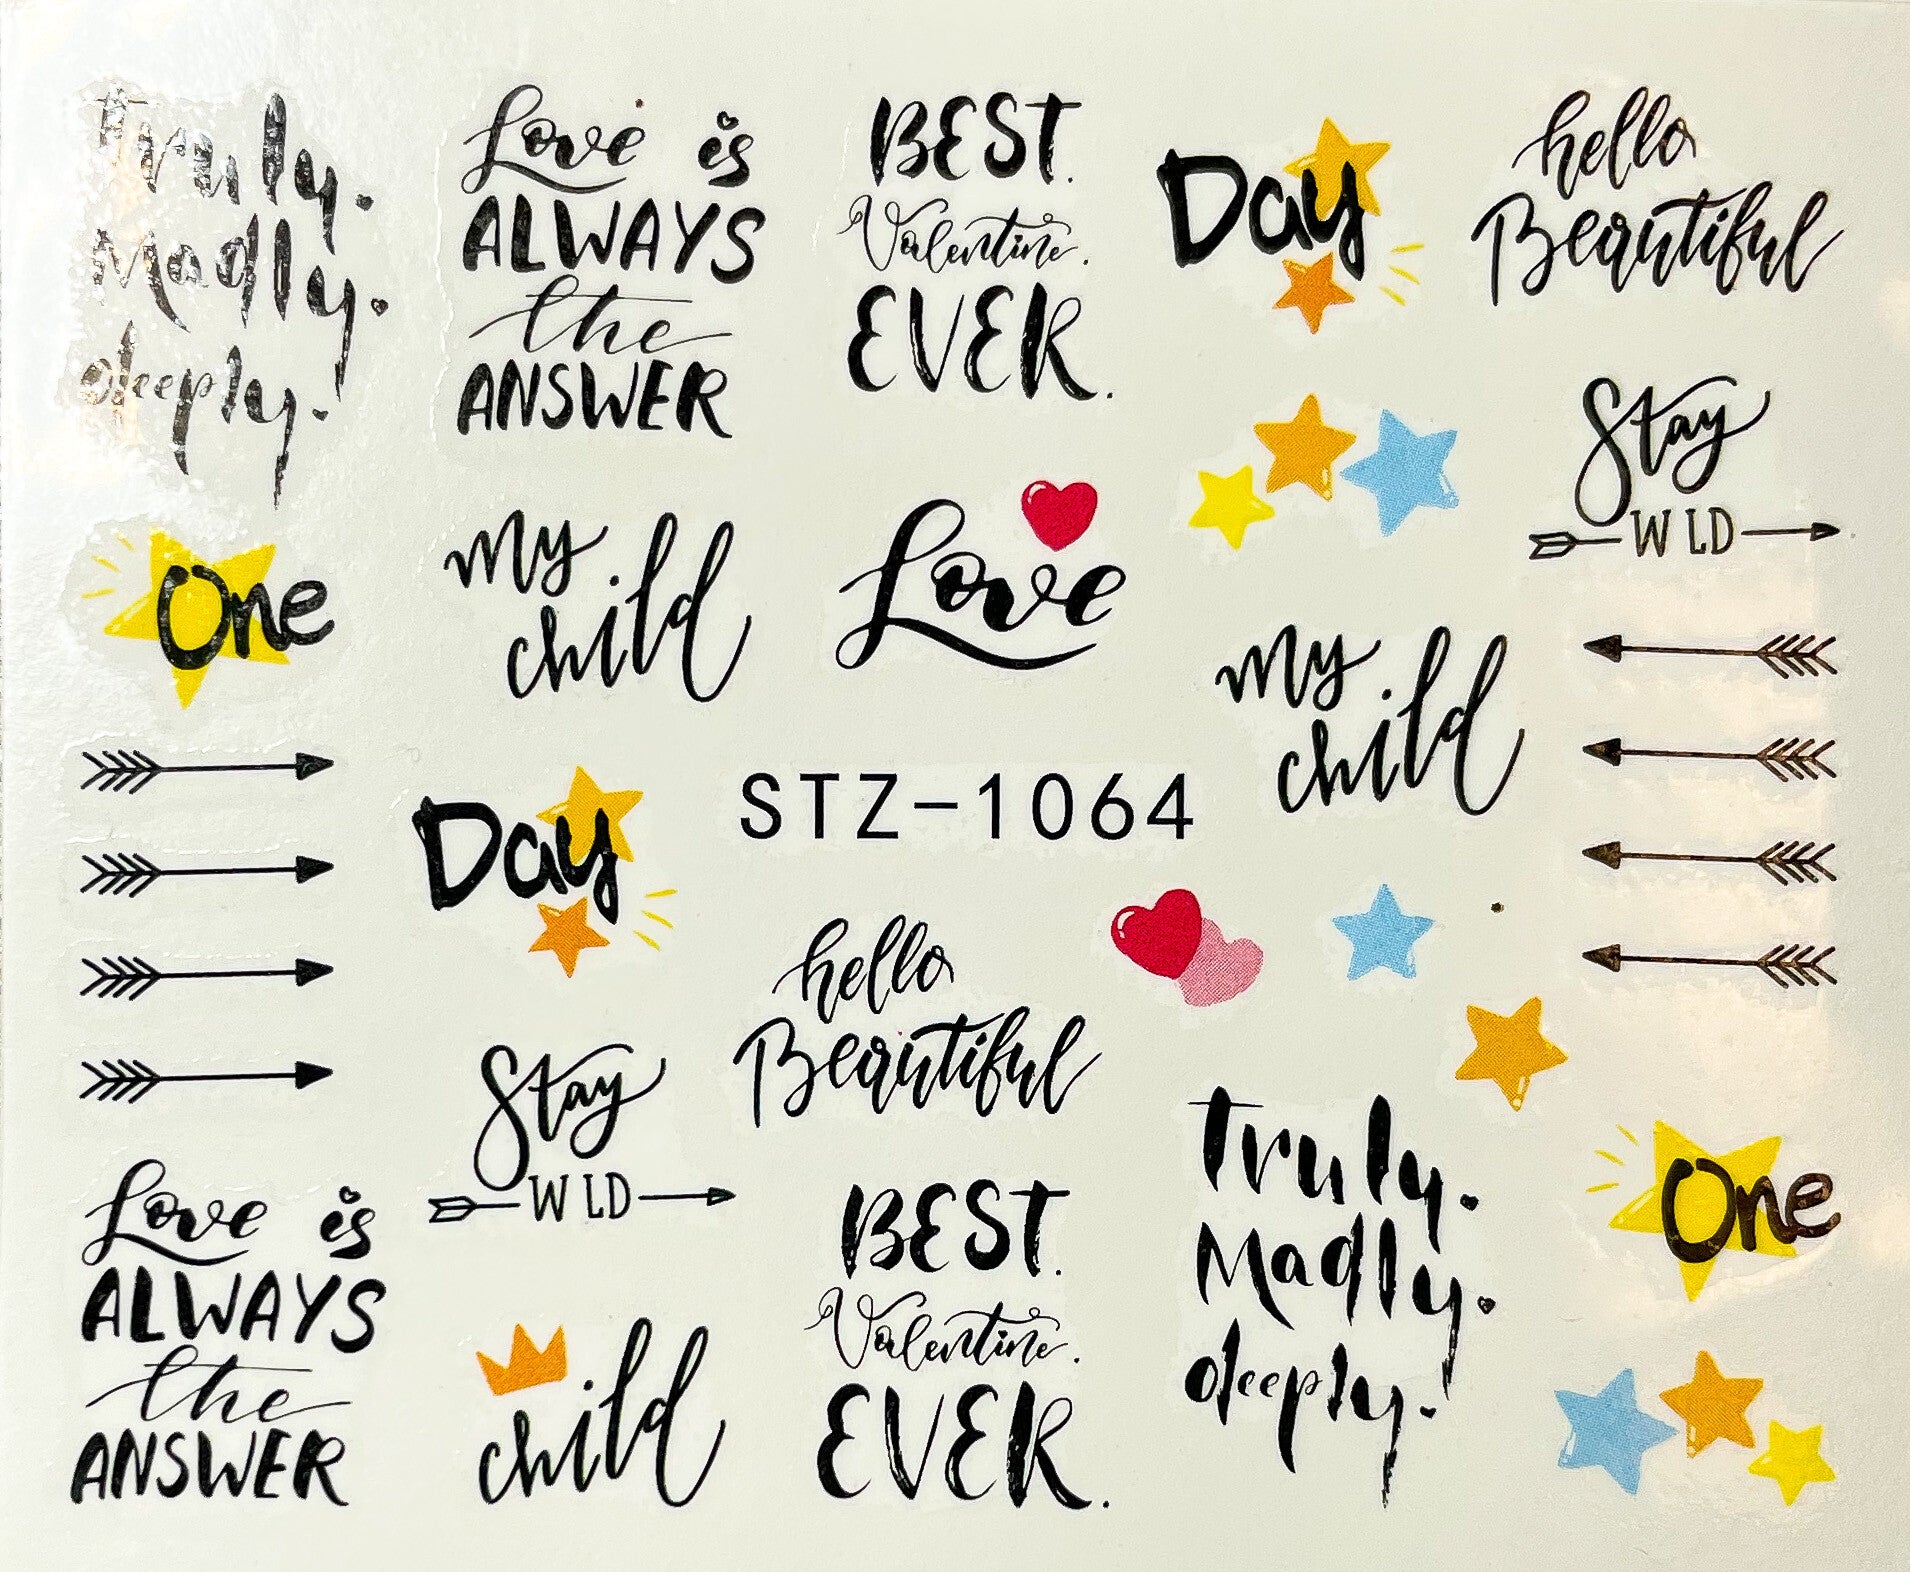 Truly.
Madly.
deeply.
Love is
ALWAYS
the
ANSWER
BEST.
Valentine.
EVER.
Day
hello
Beautiful
Stay
W LD
One
my
child
Love
my
child
Day
STZ-1064
hello
Beautiful
Stay
W LD
Love is
ALWAYS
the
ANSWER
child
BEST.
Valentine.
EVER.
Truly.
Madly.
deeply.
One